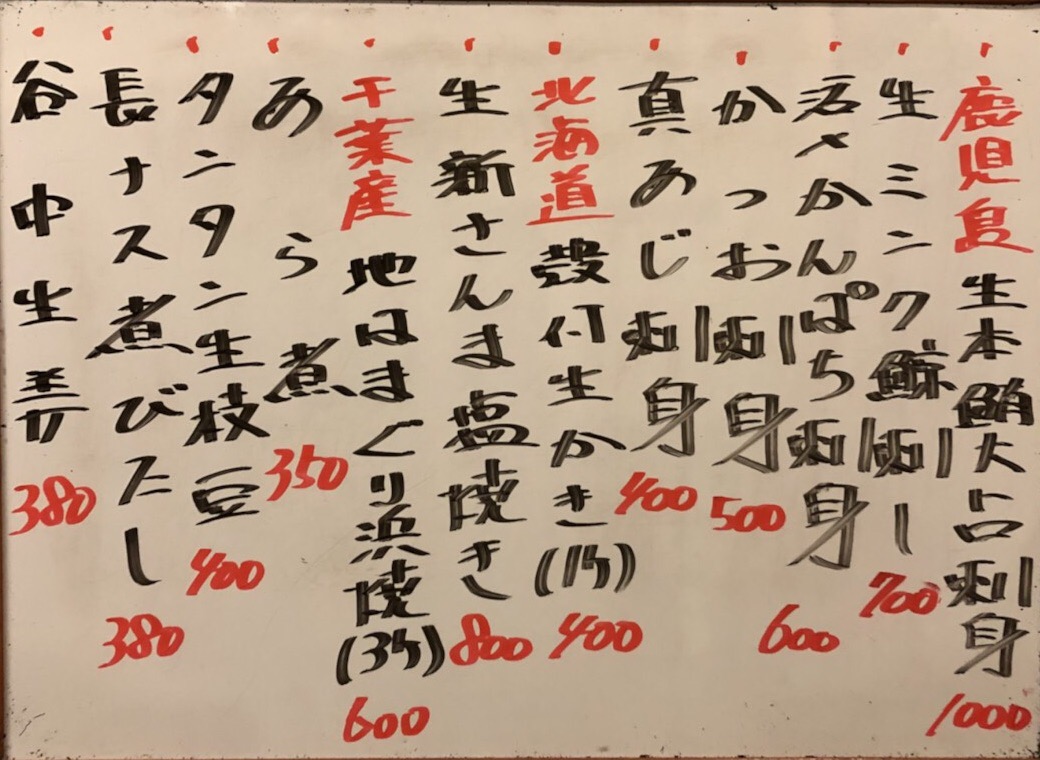 鹿児島生本鮪大トロ刺身 1000
生ミンク鯨刺し 700
活〆かんぱち刺身 600
かつお刺身 500
真あじ刺身 400
北海道殻付生かき(1ケ) 400
生新さんま塩焼き 800
千葉産地はまぐり浜焼(3ケ) 600
あら煮 350
タンタン生枝豆 400
長ナス煮びたし 380
谷中生姜 380